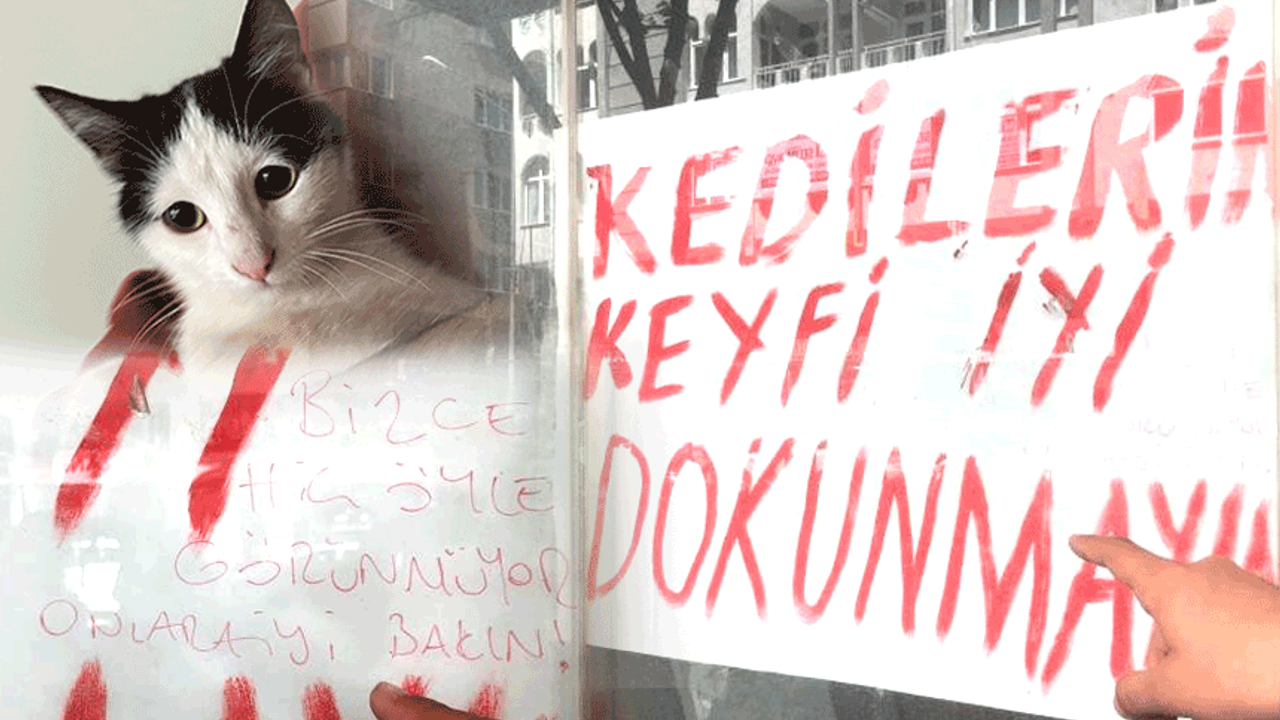 BİZCE
HİÇ ÖYLE
GÖRÜNMÜYOR
ONLARA İYİ BAKIN!
KEDİLERİN
KEYFİ İYİ
DOKUNMAYIN